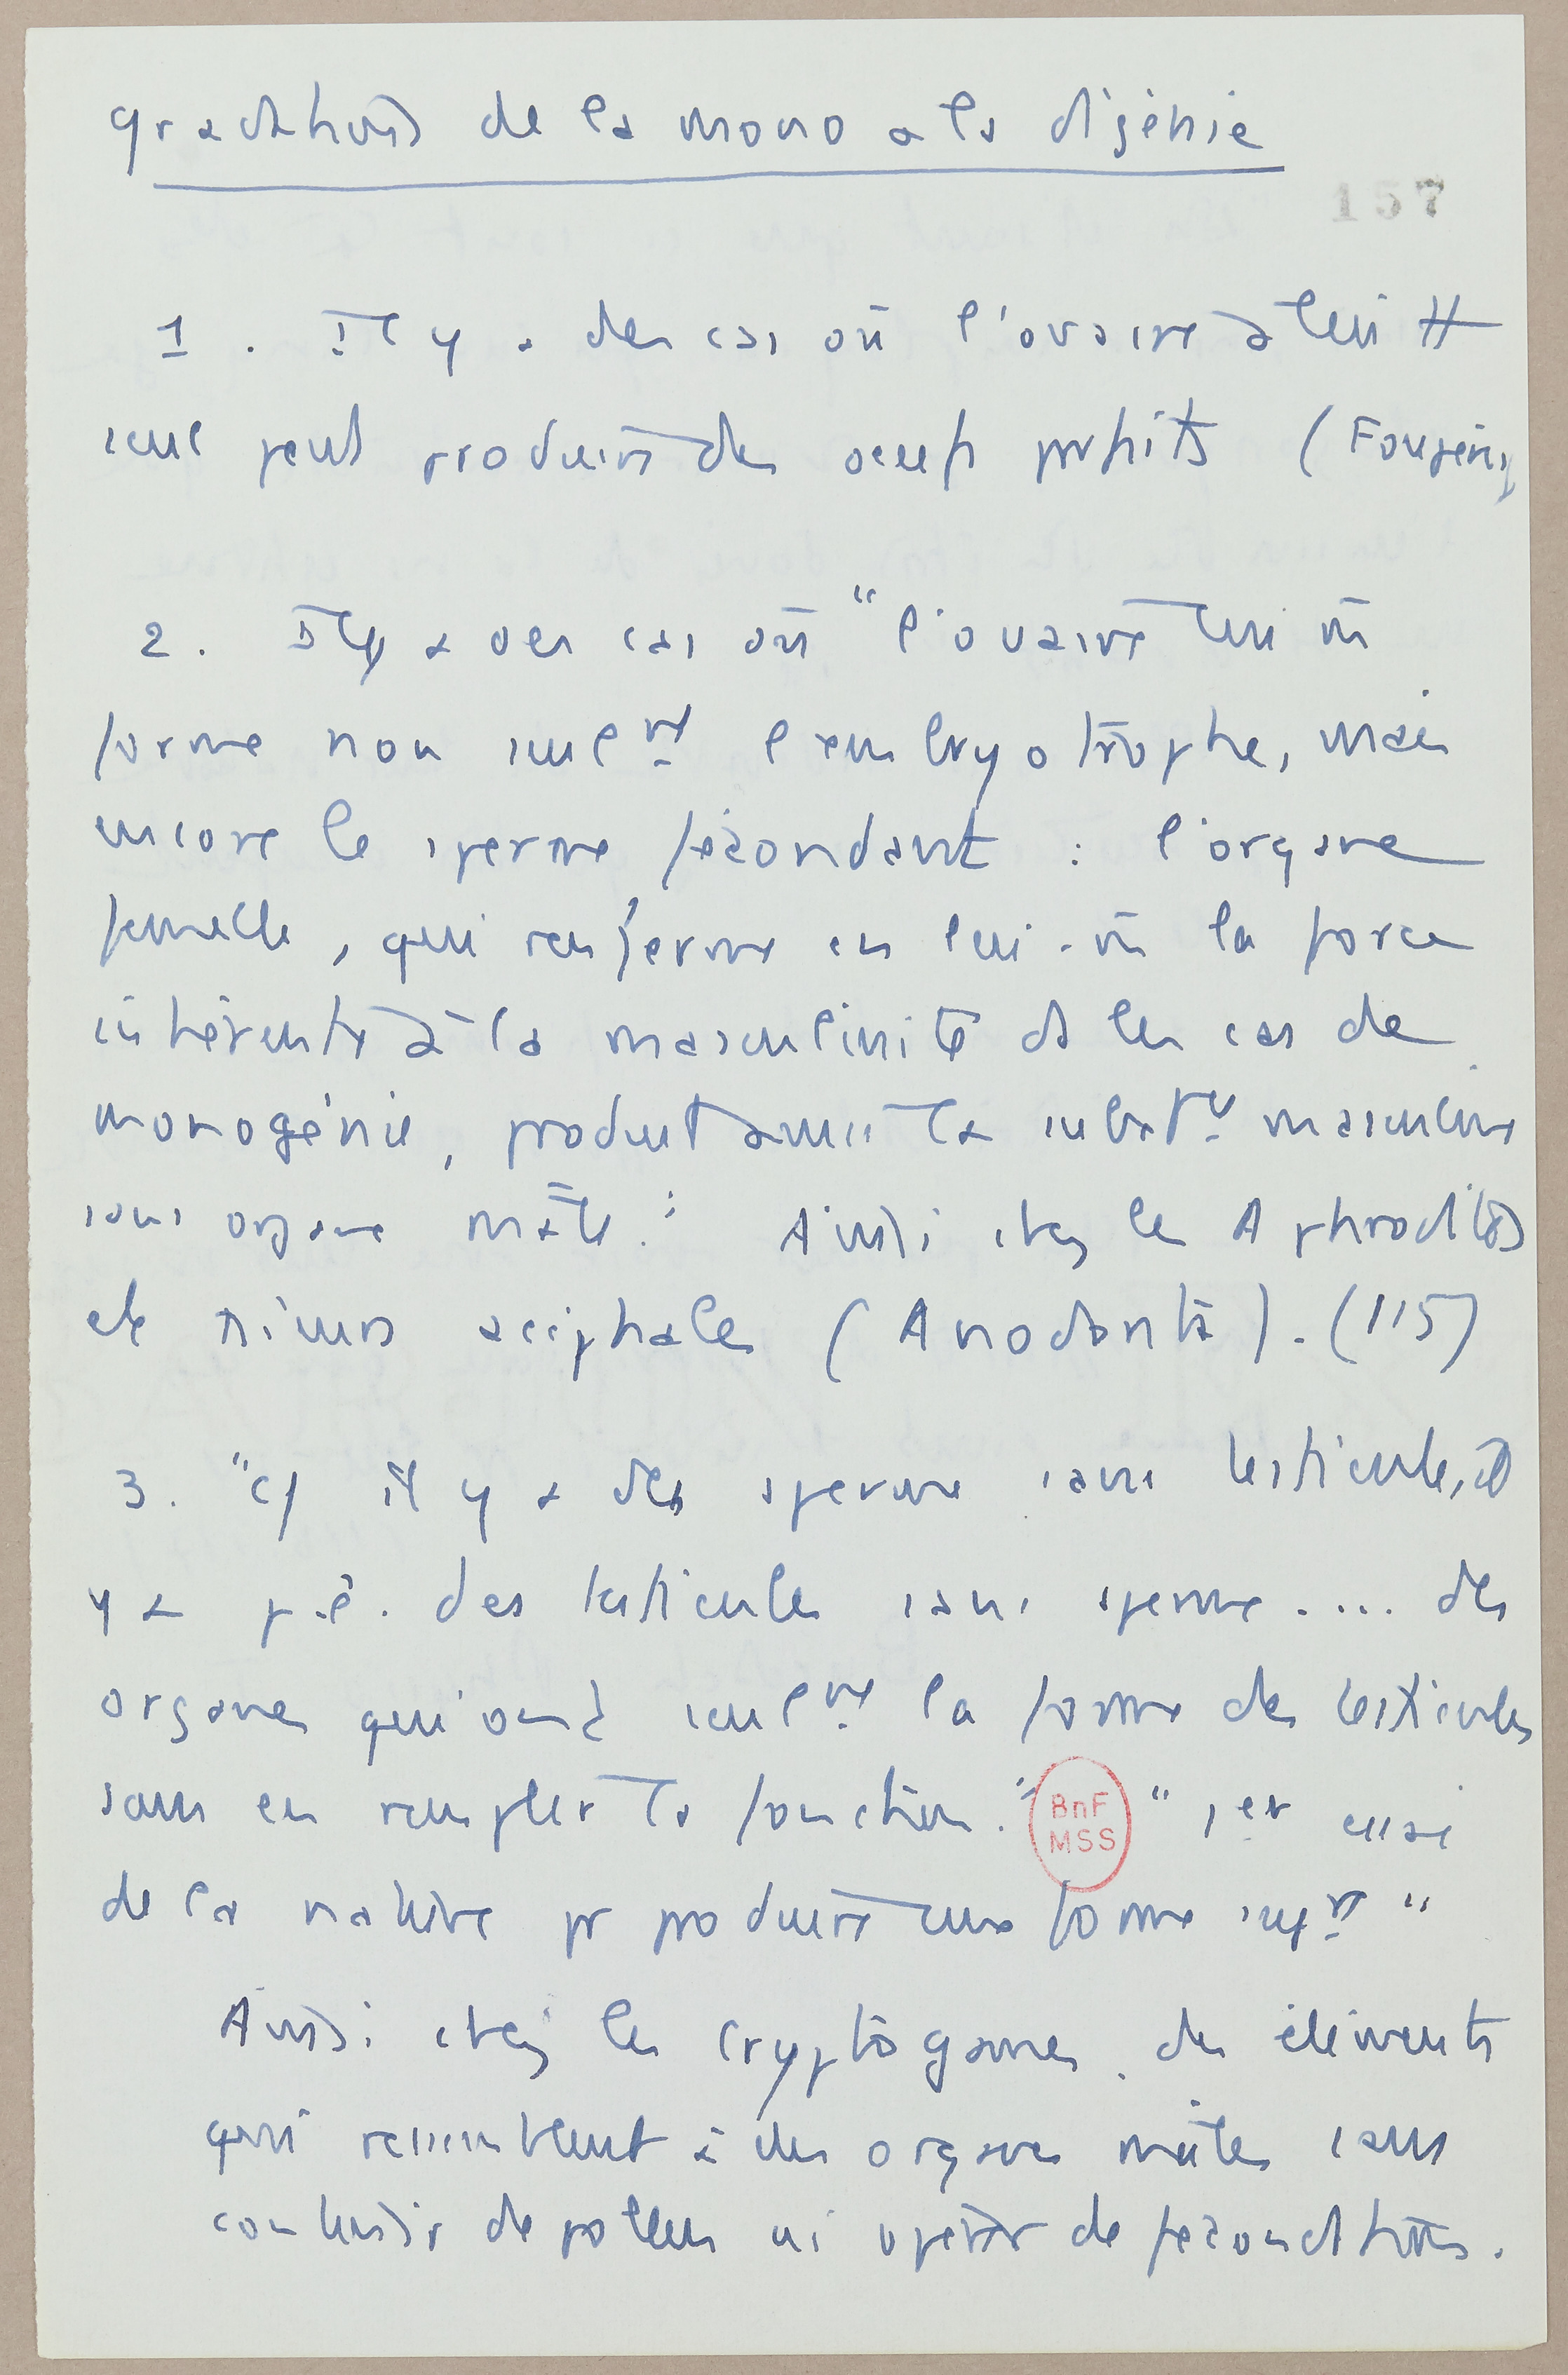 gradations de la mono a la digénie
157
1. Il y a des cas où l'ovaire à lui
seul peut produire des oeufs parfaits (Fougères
2. Il y a des cas où "l'ovaire lui m̄
forme non seulᵗ l'embryotrophe, mais
encore le sperme fécondant : l'organe
femelle, qui renferme en lui-m̄ la force
inhérente à la masculinité ds les cas de
monogénie, produit aussi la subst. masculine
sans organe mâle." Ainsi chez les Aphrodites
et acéphales (Anodonta). (115)
3. "Cf il y a des sperme sans testicule, il
y a p.ê. des testicules sans sperme .... des
organes qui ont seulᵗ la forme des testicules
sans en remplir la fonction." "1er essai
de la nature pr produire une forme supʳᵉ"
BnF
MSS
Ainsi chez les Cryptogames, des éléments
qui ressemblent à des organes mâles sans
contenir de pollen ni opérer de fécondation.